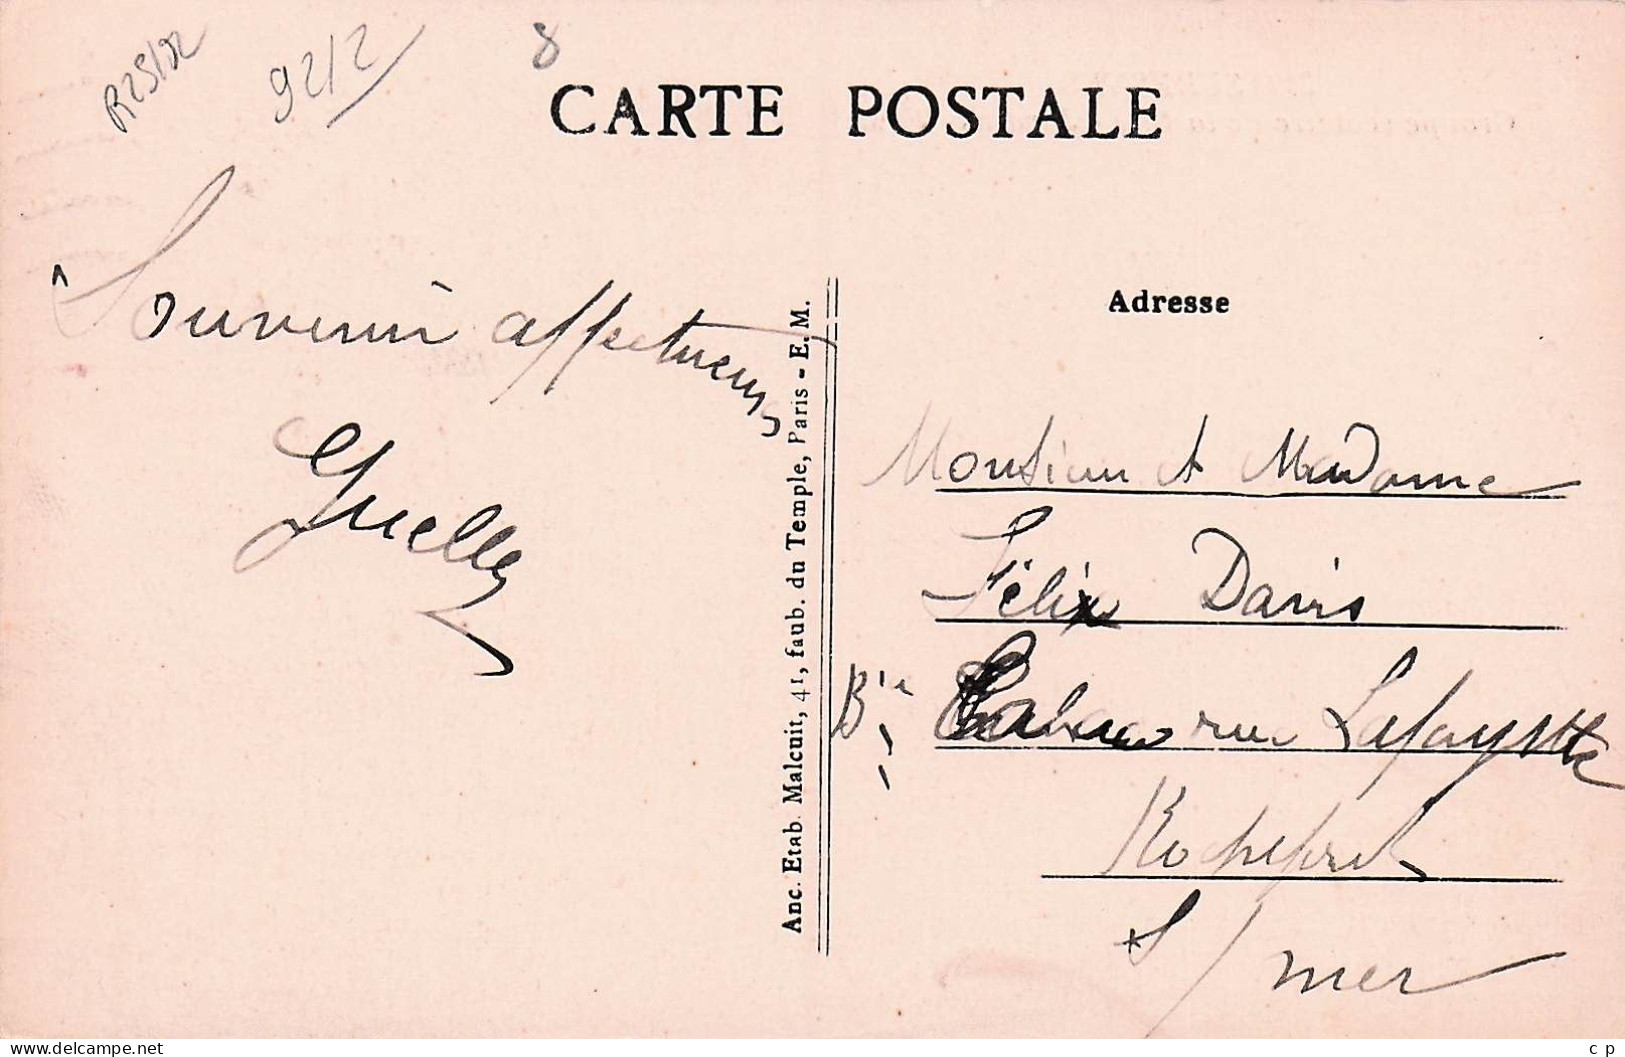 R25/92
92/2
8
CARTE POSTALE
Souvenir affectueux
Guelly
Anc. Etab. Malcuit, 41, faub. du Temple, Paris - E. M.
Adresse
Monsieur et Madame
Félix Davis
rue Lafayette
Rochefort
S/mer
www.delcampe.net
c p